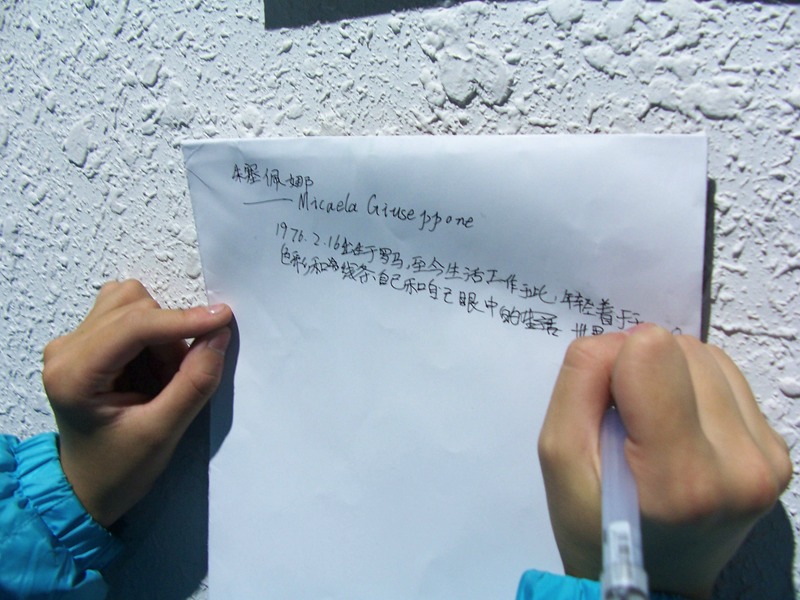 朱塞佩娜
——Micaela Giuseppone
1976.2.16出生于罗马,至今生活工作于此,年轻着于
色彩和线条、自己和自己眼中的 世界